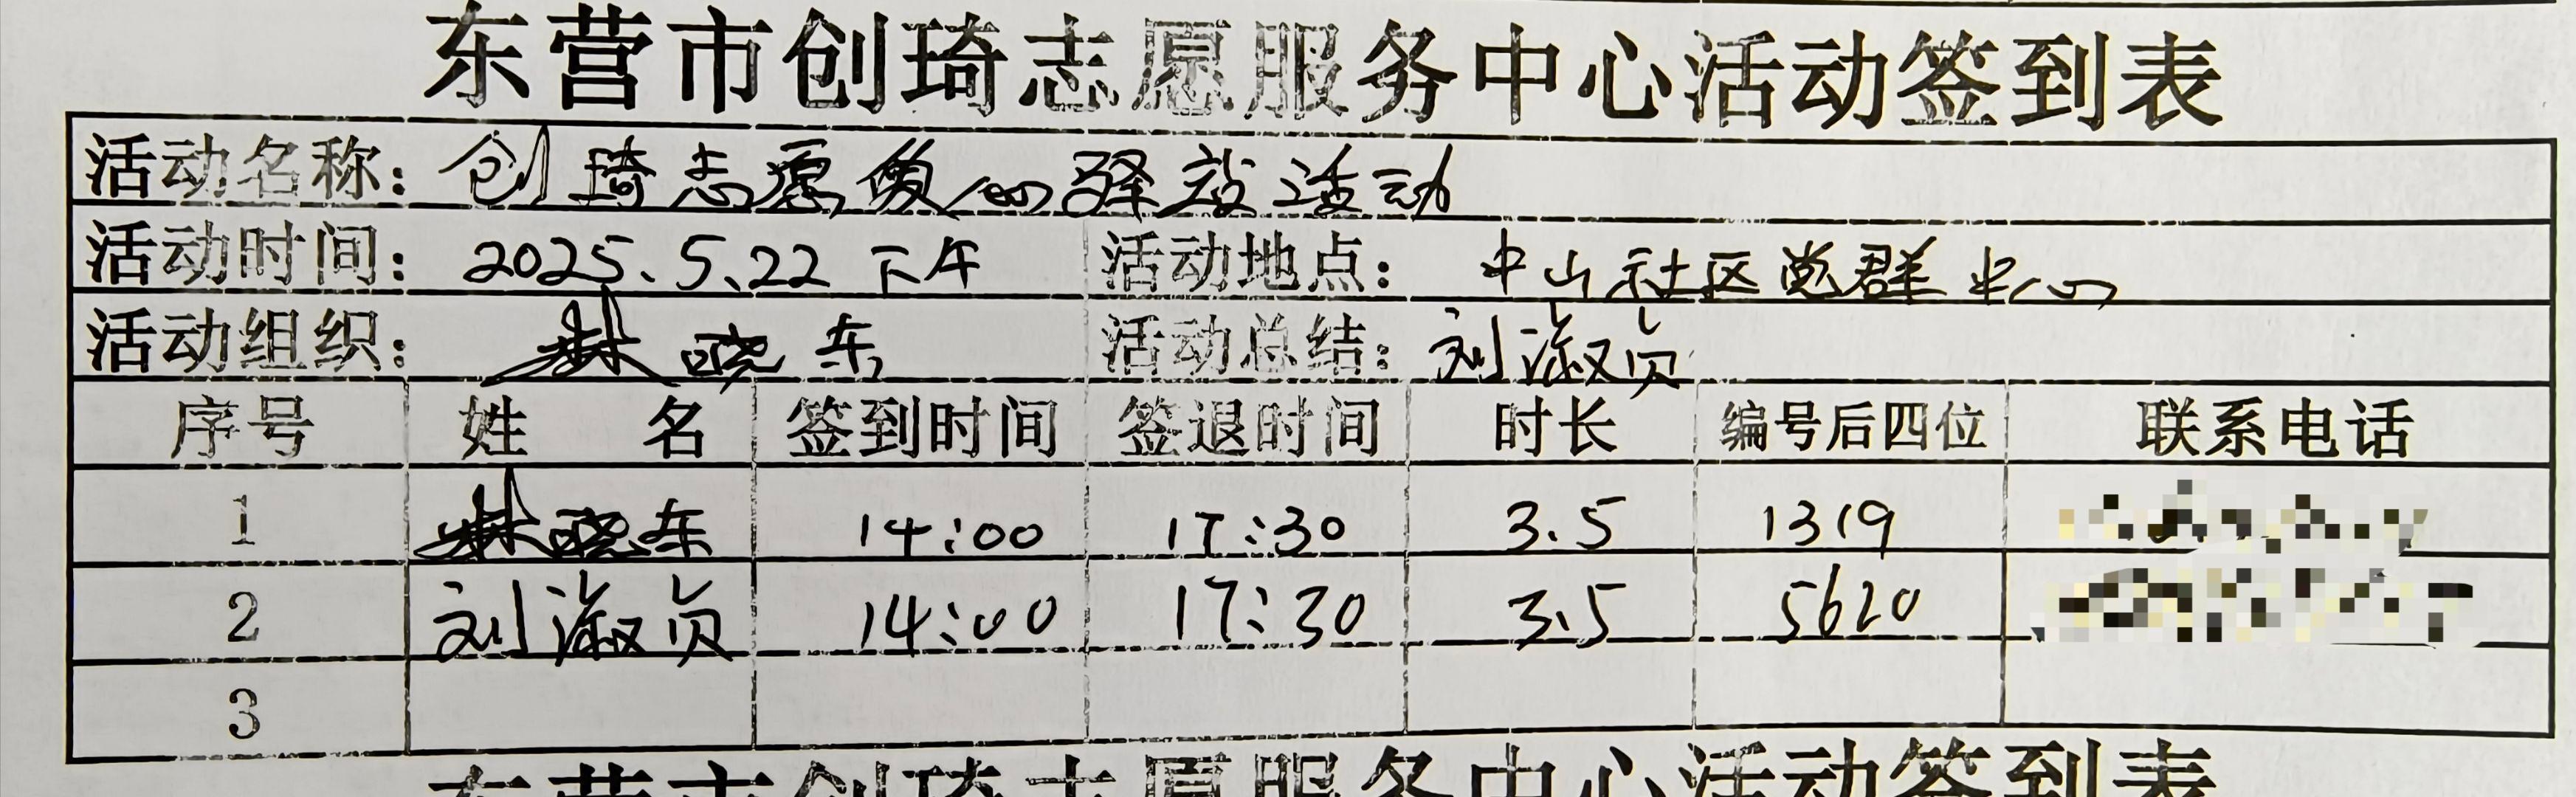 东营市创琦志愿服务中心活动签到表
活动名称：创琦志愿暖心驿站活动
活动时间：2025.5.22 下午 活动地点：中山社区党群中心
活动组织：林晓东 活动总结：刘淑贞
序号 姓名 签到时间 签退时间 时长 编号后四位 联系电话
1 林晓东 14:00 17:30 3.5 1319
2 刘淑贞 14:00 17:30 3.5 5620
3
东营市创琦志愿服务中心活动签到表